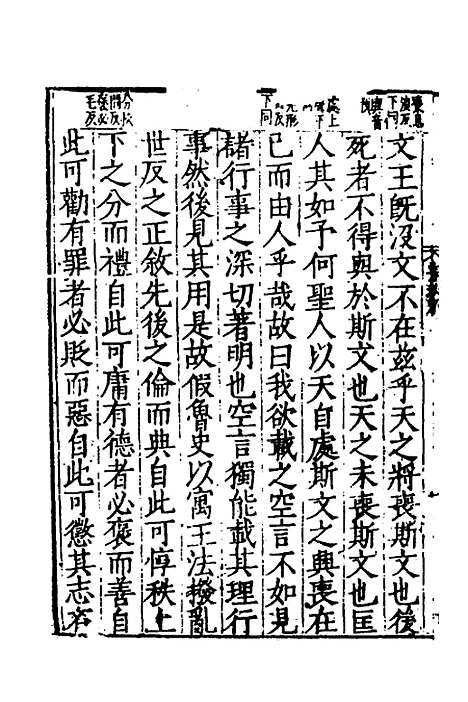 文王旣没文不在兹乎天之將喪斯文也後
死者不得與於斯文也天之未喪斯文也匡
人其如予何聖人以天自處斯文之興喪在
已而由人乎哉故曰我欲載之空言不如見
諸行事之深切著明也空言獨能載其理行
事然後見其用是故假魯史以寓王法撥亂
世反之正敘先後之倫而典自此可惇秩上
下之分而禮自此可庸有德者必褒而善自
此可勸有罪者必貶而惡自此可懲其志存